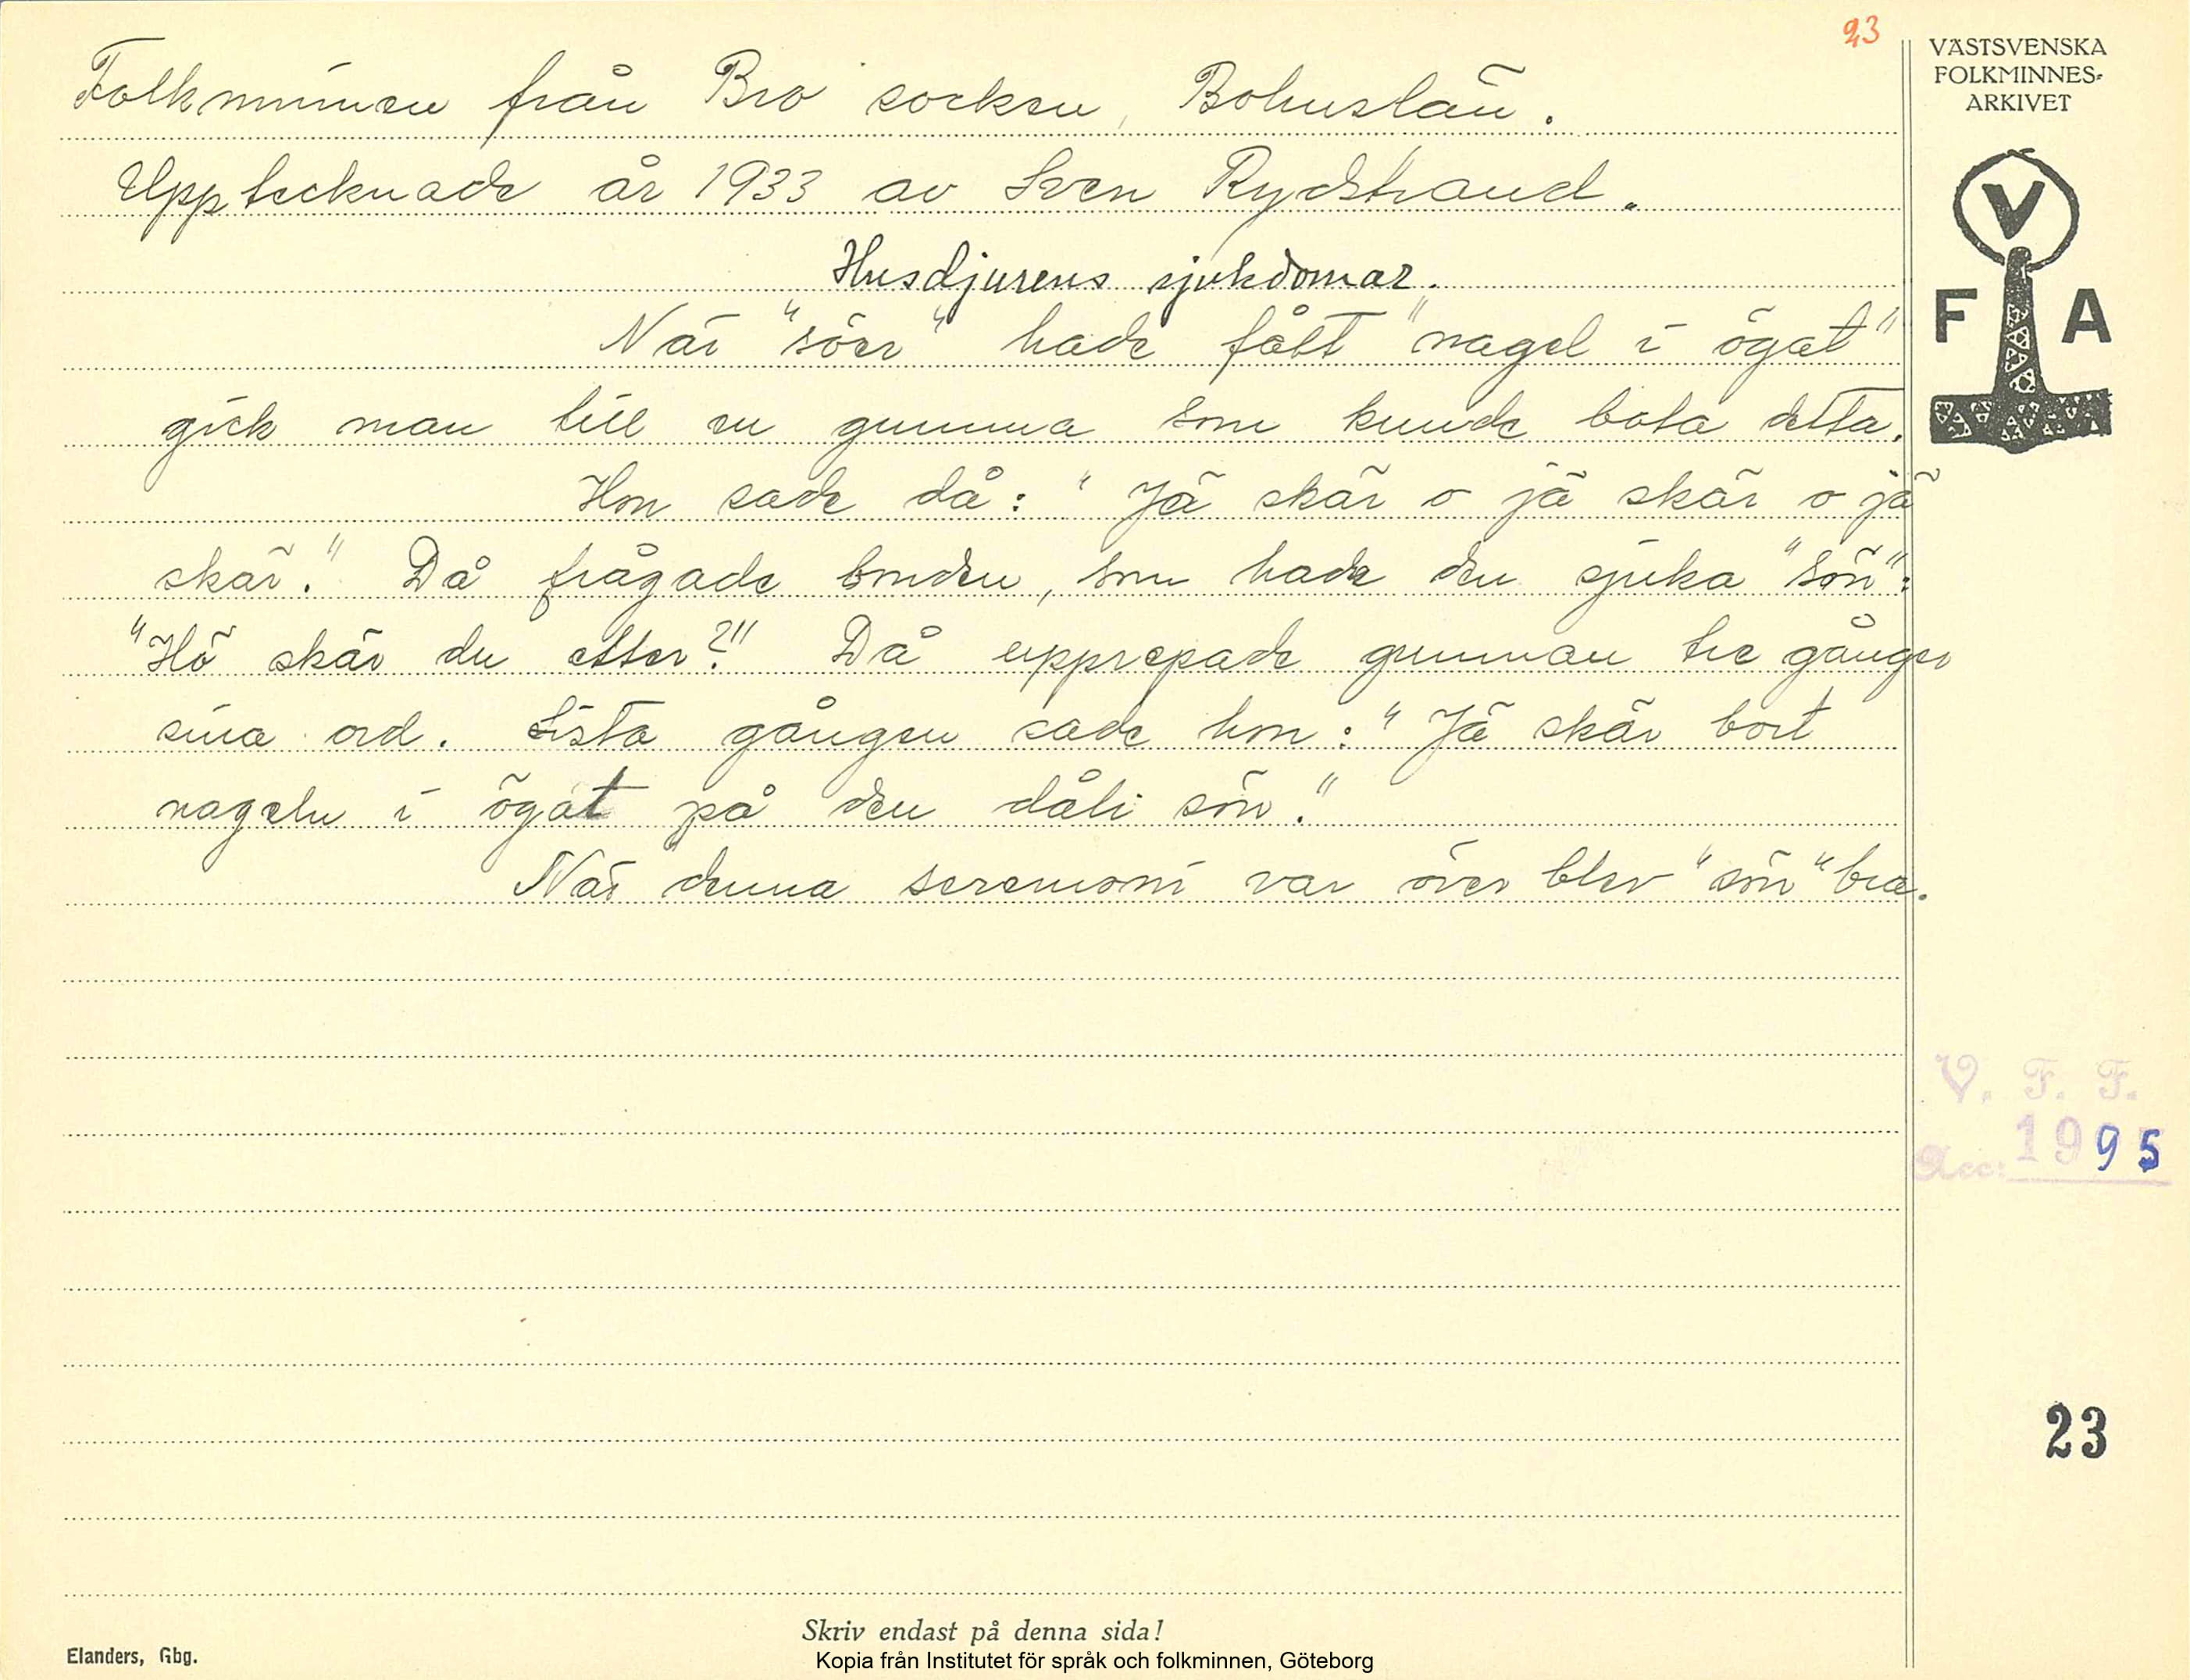 23
VÄSTSVENSKA
FOLKMINNES-
ARKIVET
V
F A
Folkminnen från Bro socken, Bohuslän.
Upptecknade år 1933 av Sven Rydstrand.
Husdjurens sjukdomar.
När "söer" hade fått "nagel i ögat"
gick man till en gumma som kunde bota detta.
Hon sade då: "Jä skär o jä skär o jä
skär." Då frågade bonden, som hade den sjuka "sön":
"Hö skär du etter?" Då upprepade gumman tre gånger
sina ord. Sista gången sade hon: "Jä skär bort
nageln i ögat på den dåli sön."
När denna seremoni var över blev "sön" bra.
V. F. F.
Acc: 1995
23
Skriv endast på denna sida!
Elanders, Gbg.
Kopia från Institutet för språk och folkminnen, Göteborg